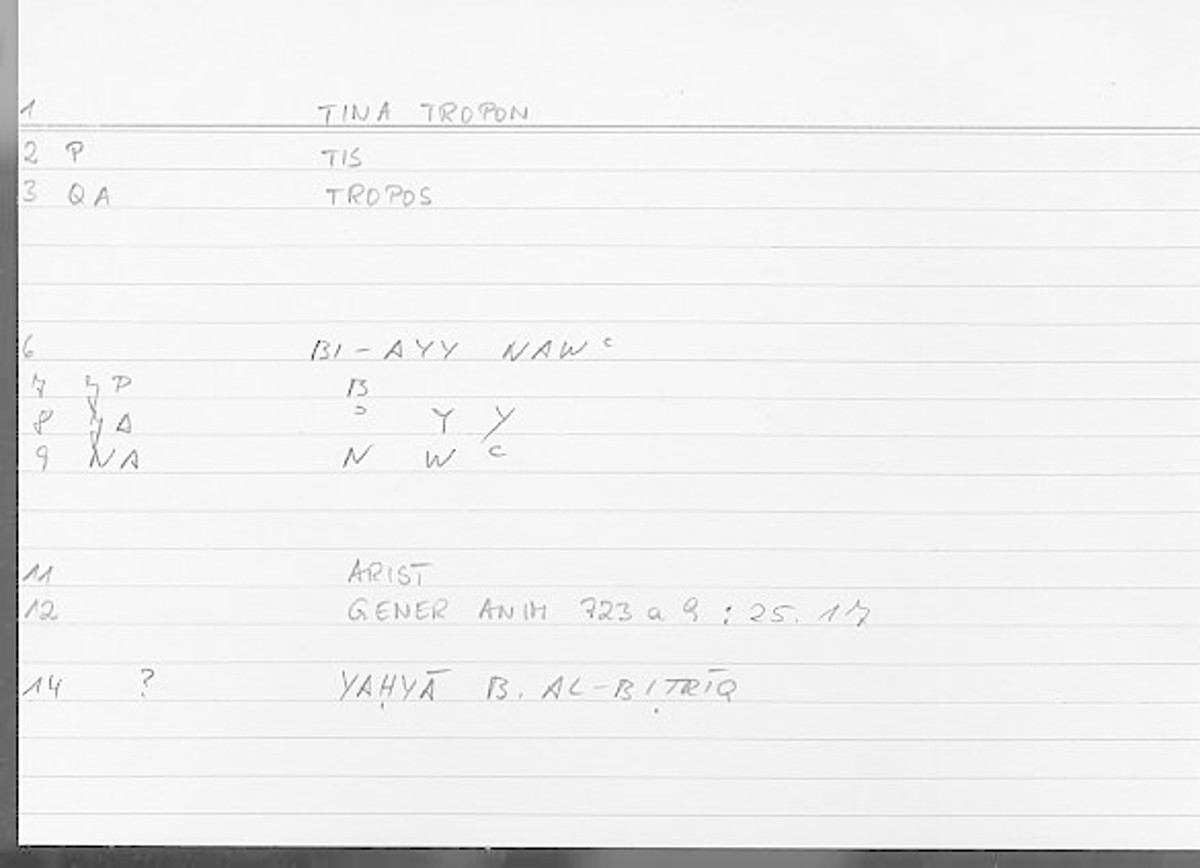 1 TINA TROPON
2 P TIS
3 QA TROPOS
6 BI-AYY NAWʿ
7 P B
8 A ʾ Y Y
9 NA N W ʿ
11 ARIST
12 GENER ANIM 723 a 9 : 25. 17
14 ? YAḤYĀ B. AL-BIṬRĪQ